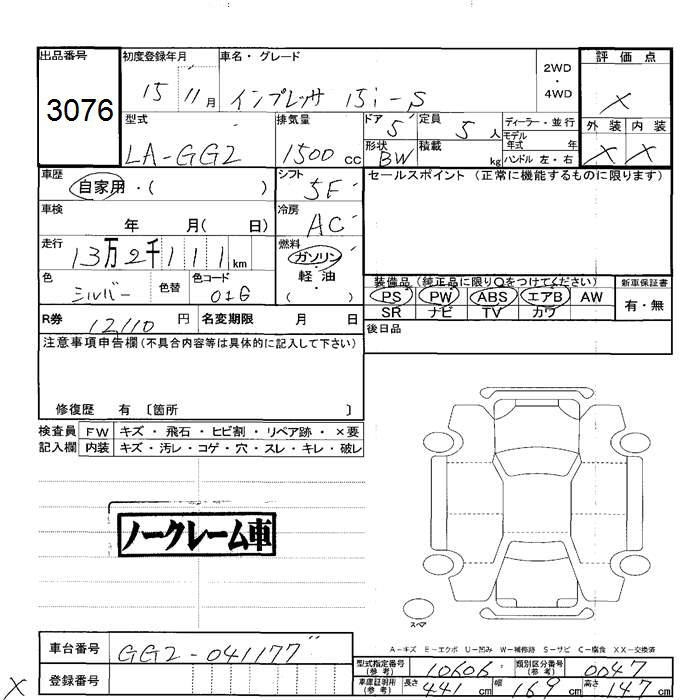 出品番号 初度登録年月 車名・グレード 2WD・4WD 評価点
3076 15 11月 インプレッサ 15i-S X
型式 排気量 ドア 定員 ディーラー・並行 外装 内装
LA-GG2 1500cc 5 5人 モデル年式 年 X X
形状 BW 積載 kg ハンドル 左・右
車歴 自家用・( ) シフト 5F セールスポイント (正常に機能するものに限ります)
車検 年 月( 日) 冷房 AC
走行 13万2千111km 燃料 ガソリン・軽油・( )
色 シルバー 色替 色コード 01G
装備品 (純正品に限り○をつけてください) 新車保証書
PS PW ABS エアB AW 有・無
SR ナビ TV カワ
R券 12110円 名変期限 月 日 後日品
注意事項申告欄(不具合内容等は具体的に記入して下さい)
修復歴 有 〔箇所 〕
検査員 FW キズ・飛石・ヒビ割・リペア跡・×要
記入欄 内装 キズ・汚レ・コゲ・穴・スレ・キレ・破レ
ノークレーム車
スペア
A-キズ E-エクボ U-凹み W-補修跡 S-サビ C-腐食 XX-交換済
車台番号 GG2-041177
型式指定番号(参考) 10606 類別区分番号(参考) 0047
登録番号
車庫証明用(参考) 長さ 441cm 幅 169cm 高さ 147cm
X